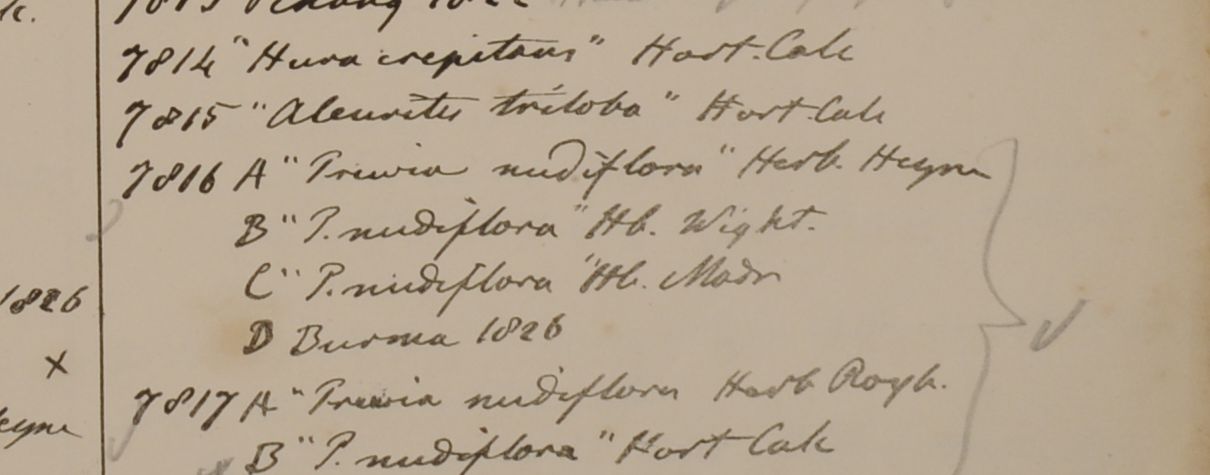 7813 Penang 1822
7814 "Hura crepitans" Hort. Calc
7815 "Aleurites triloba" Hort Calc
7816 A "Trewia nudiflora" Herb. Heyne
B "T. nudiflora" Hb. Wight.
C "T. nudiflora" Hb. Madr
1826
D Burma 1826
x
7817 A "Trewia nudiflora Herb Roxb.
eyne
B "T. nudiflora" Hort Calc